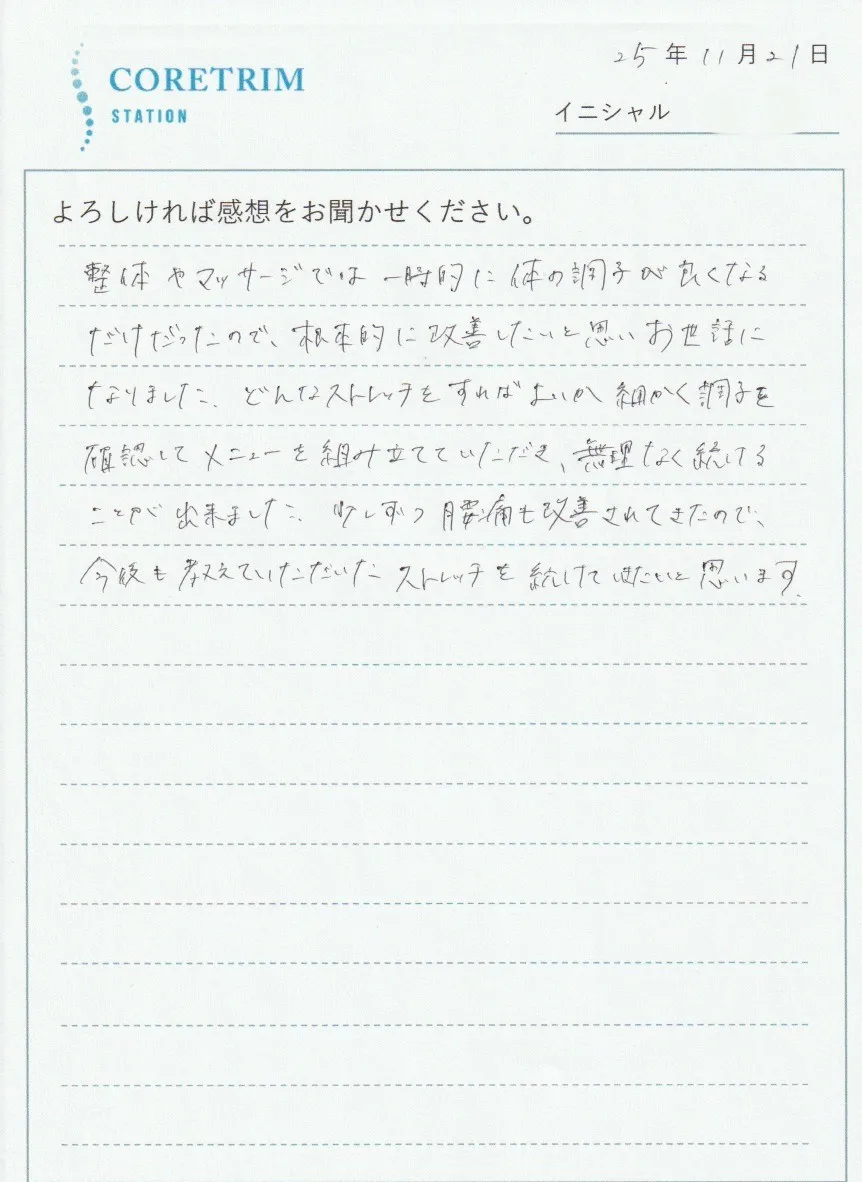 CORETRIM
STATION
25年11月21日
イニシャル
よろしければ感想をお聞かせください。
整体やマッサージでは一時的に体の調子が良くなる
だけだったので、根本的に改善したいと思いお世話に
なりました。どんなストレッチをすればよいか細かく調子を
確認してメニューを組み立てていただき、無理なく続ける
ことが出来ました。少しずつ腰痛も改善されてきたので、
今後も教えていただいたストレッチを続けていきたいと思います。